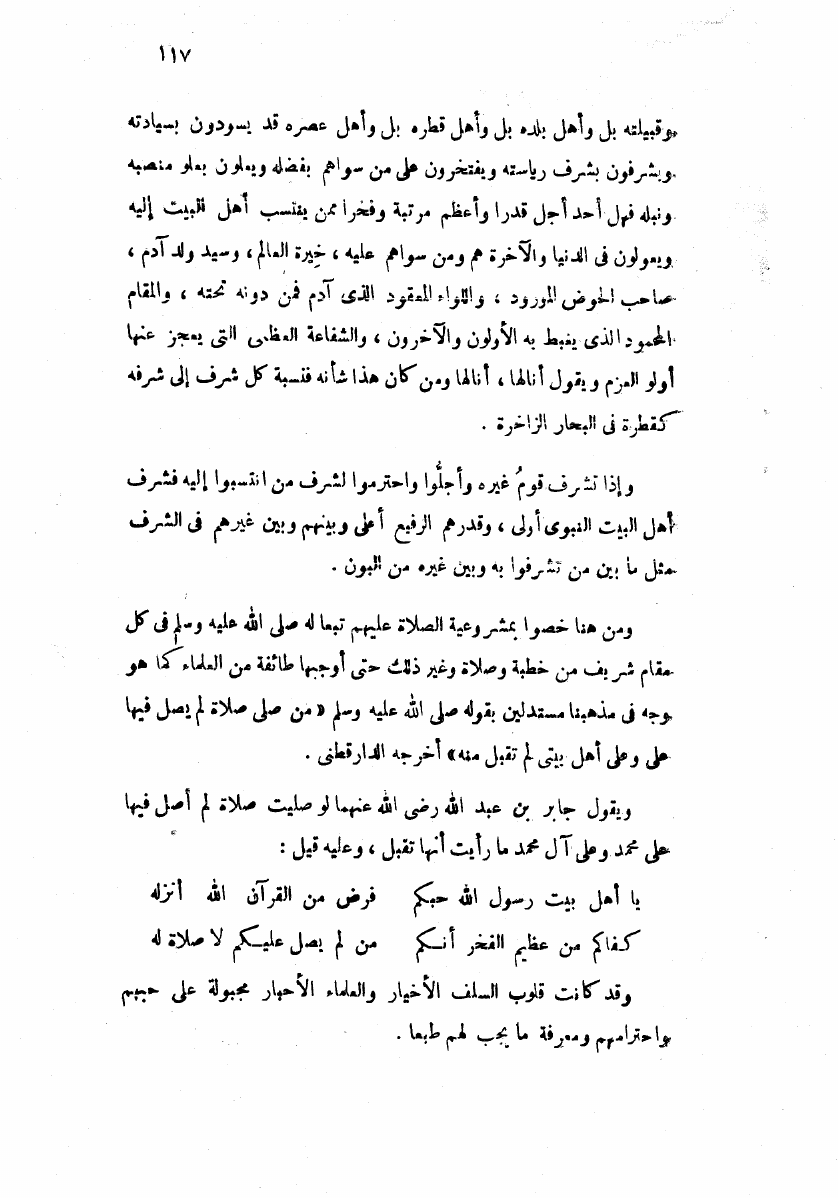 ١١٧
وقبيلته بل وأهل بلده بل وأهل قطره بل وأهل عصره قد يسودون بسيادته
ويشرفون بشرف رياسته ويفتخرون على من سواهم بفضله ويعلون بعلو منصبه
ونبله فهل أحد أجل قدرا وأعظم مرتبة وفخرا ممن ينتسب أهل البيت إليه
ويعولون فى الدنيا والآخرة هم ومن سواهم عليه ، خِيرة العالم ، وسيد ولد آدم ،
صاحب الحوض المورود ، واللواء المعقود الذى آدم فمن دونه تحته ، والمقام
المحمود الذى يغبط به الأولون والآخرون ، والشفاعة العظمى التى يعجز عنها
أولو العزم ويقول أنالها ، أنالها ومن كان هذا شأنه فنسبة كل شرف إلى شرفه
كقطرة فى البحار الزاخرة .
وإذا تشرف قومُ غيره وأجلُّوا واحترموا لشرف من انتسبوا إليه فشرف
أهل البيت النبوى أولى ، وقدرهم الرفيع أعلى وبينهم وبين غيرهم فى الشرف
مثل ما بين من تشرفوا به وبين غيره من البون .
ومن هنا خصوا بمشروعية الصلاة عليهم تبعا له صلى الله عليه وسلم فى كل
مقام شريف من خطبة وصلاة وغير ذلك حتى أوجبها طائفة من العلماء كما هو
وجه فى مذهبنا مستدلين بقوله صلى الله عليه وسلم «من صلى صلاة لم يصل فيها
على وعلى أهل بيتى لم تقبل منه» أخرجه الدارقطنى .
ويقول جابر بن عبد الله رضى الله عنهما لو صليت صلاة لم أصل فيها
على محمد وعلى آل محمد ما رأيت أنها تقبل ، وعليه قيل :
يا أهل بيت رسول الله حبكم فرض من القرآن الله أنزله
كفاكم من عظيم الفخر أنكم من لم يصل عليكم لا صلاة له
وقد كانت قلوب السلف الأخيار والعلماء الأحبار مجبولة على حبهم
واحترامهم ومعرفة ما يجب لهم طبعا .